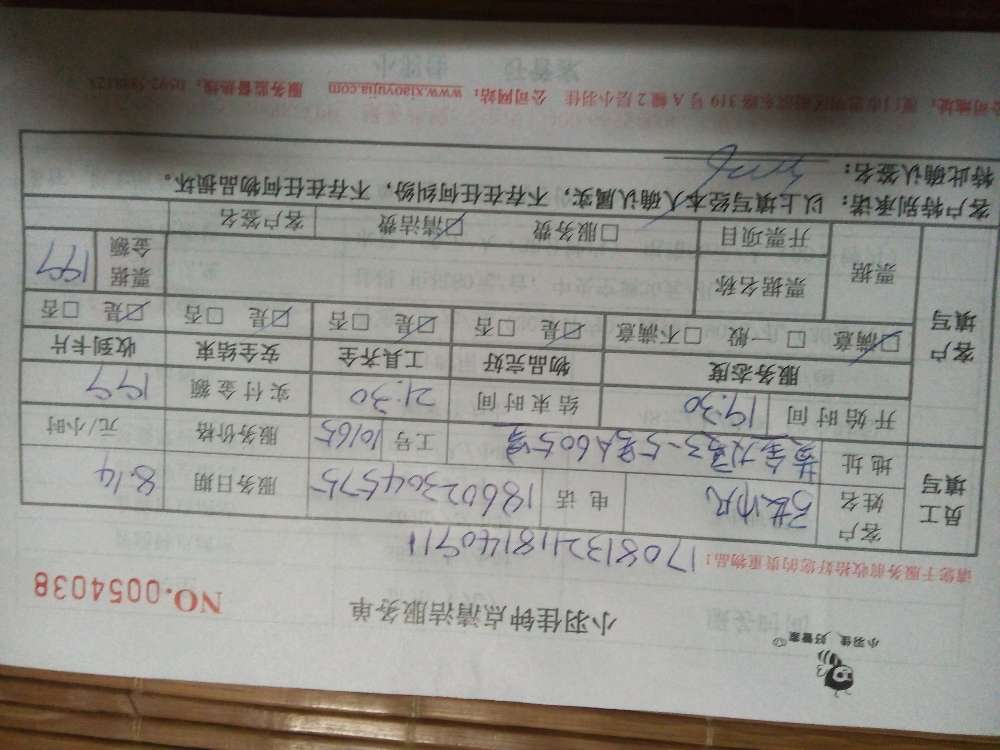 小羽佳 好管家
小羽佳钟点清洁服务单
NO.0054038
请您于服务前收拾好您的贵重物品:
员工填写
客户姓名
电话 18602304575
服务日期 8.14
地址
工号 10165
服务价格 元/小时
开始时间 19:30
结束时间 21:30
实付金额 199
客户填写
服务态度 物品完好 工具齐全 安全结束 收到卡片
☑满意 □一般 □不满意 ☑是 □否 ☑是 □否 ☑是 □否 ☑是 □否
票据
票据名称
票据金额 199
开票项目 □服务费 ☑清洁费 客户签名
客户特别承诺:以上填写经本人确认属实,不存在任何纠纷,不存在任何物品损坏。
特此确认签名:
号A幢2层小羽佳 公司网站:www.xiaoyujia.com 服务监督热线: